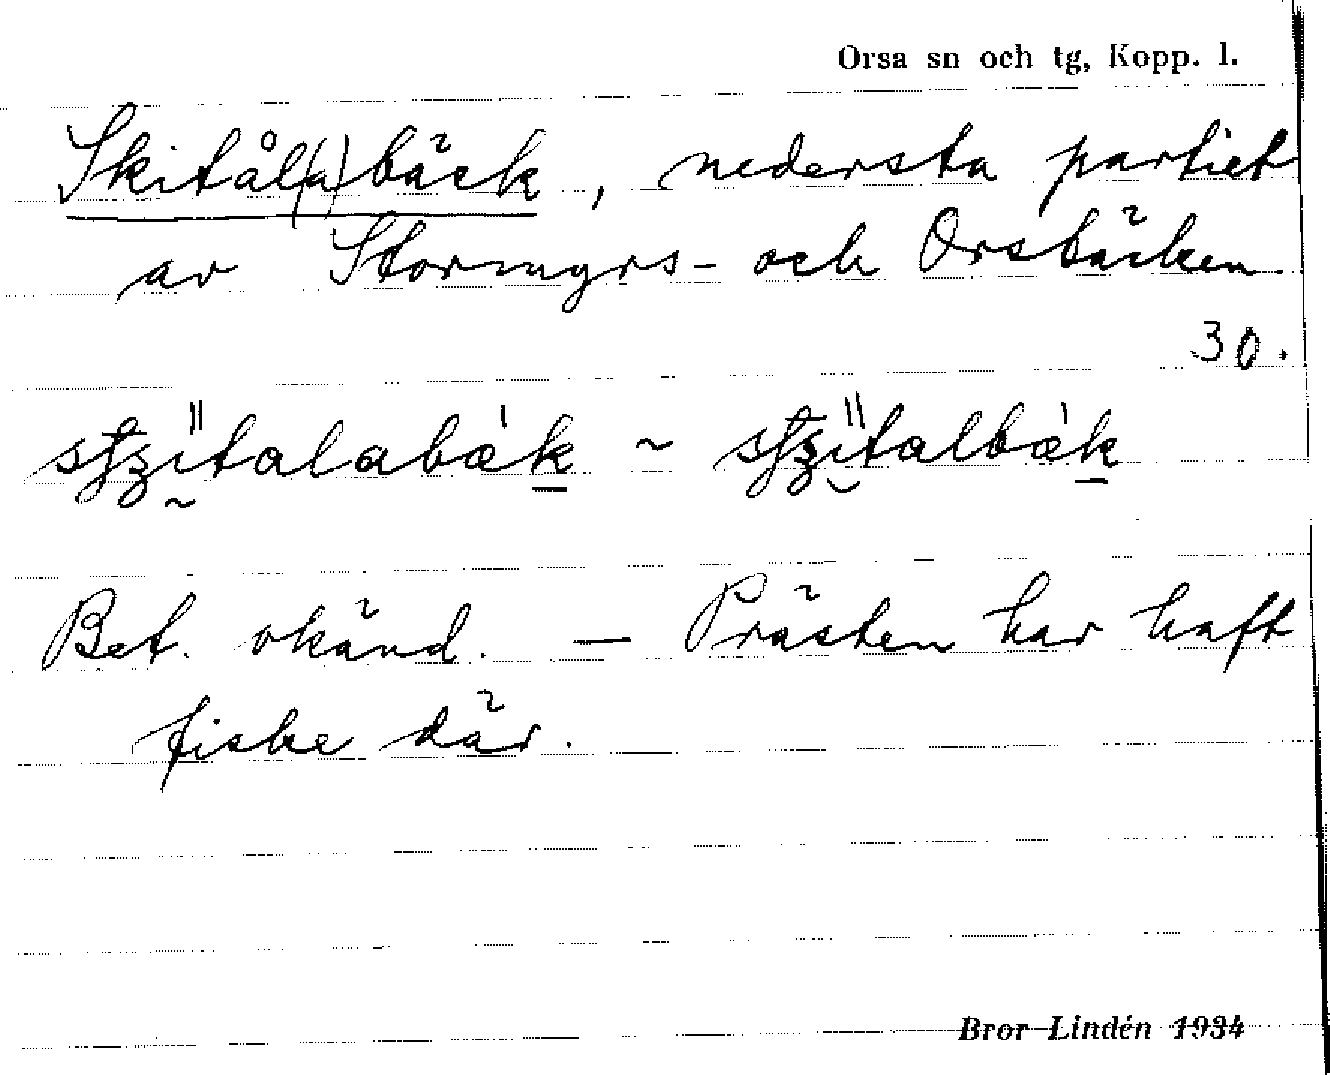 Orsa sn och tg, Kopp. l.
Skitål(a)bäck, nedersta partiet
av Stormyrs- och Orsbäcken.
30.
~
Bet. okänd. — Prästen har haft
fiske där.
Bror Lindén 1934